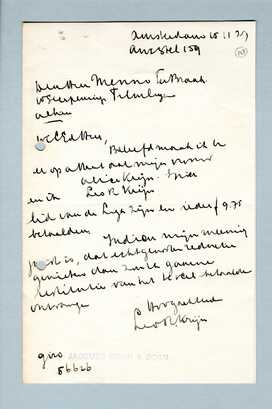 Amsterdam 15.11.29
Amstel 159
Den Heer Menno Ter Braak
Vereeniging Filmliga
alhier
WelEd Heer,
Beleefd maak ik
er op attent dat mijn vrouw
Krijn
en ik Leo R Krijn
lid van de Liga zijn en ieder f 9.75
betaalden.
Indien mijn meening
juist is, dat echtgenooten reductie
genieten dan zou ik gaarne
restitutie van het te veel betaalde
ontvangen
Hoogachtend
Leo R Krijn
giro
86626